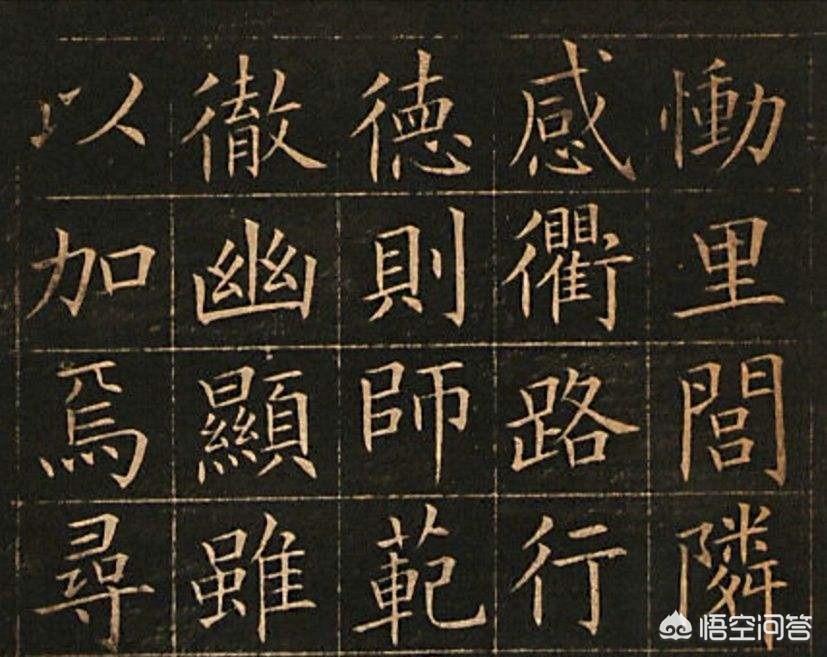 慟里閭隣
感衢路行
德則師範
徹幽顯雖
以加焉尋
悟空问答